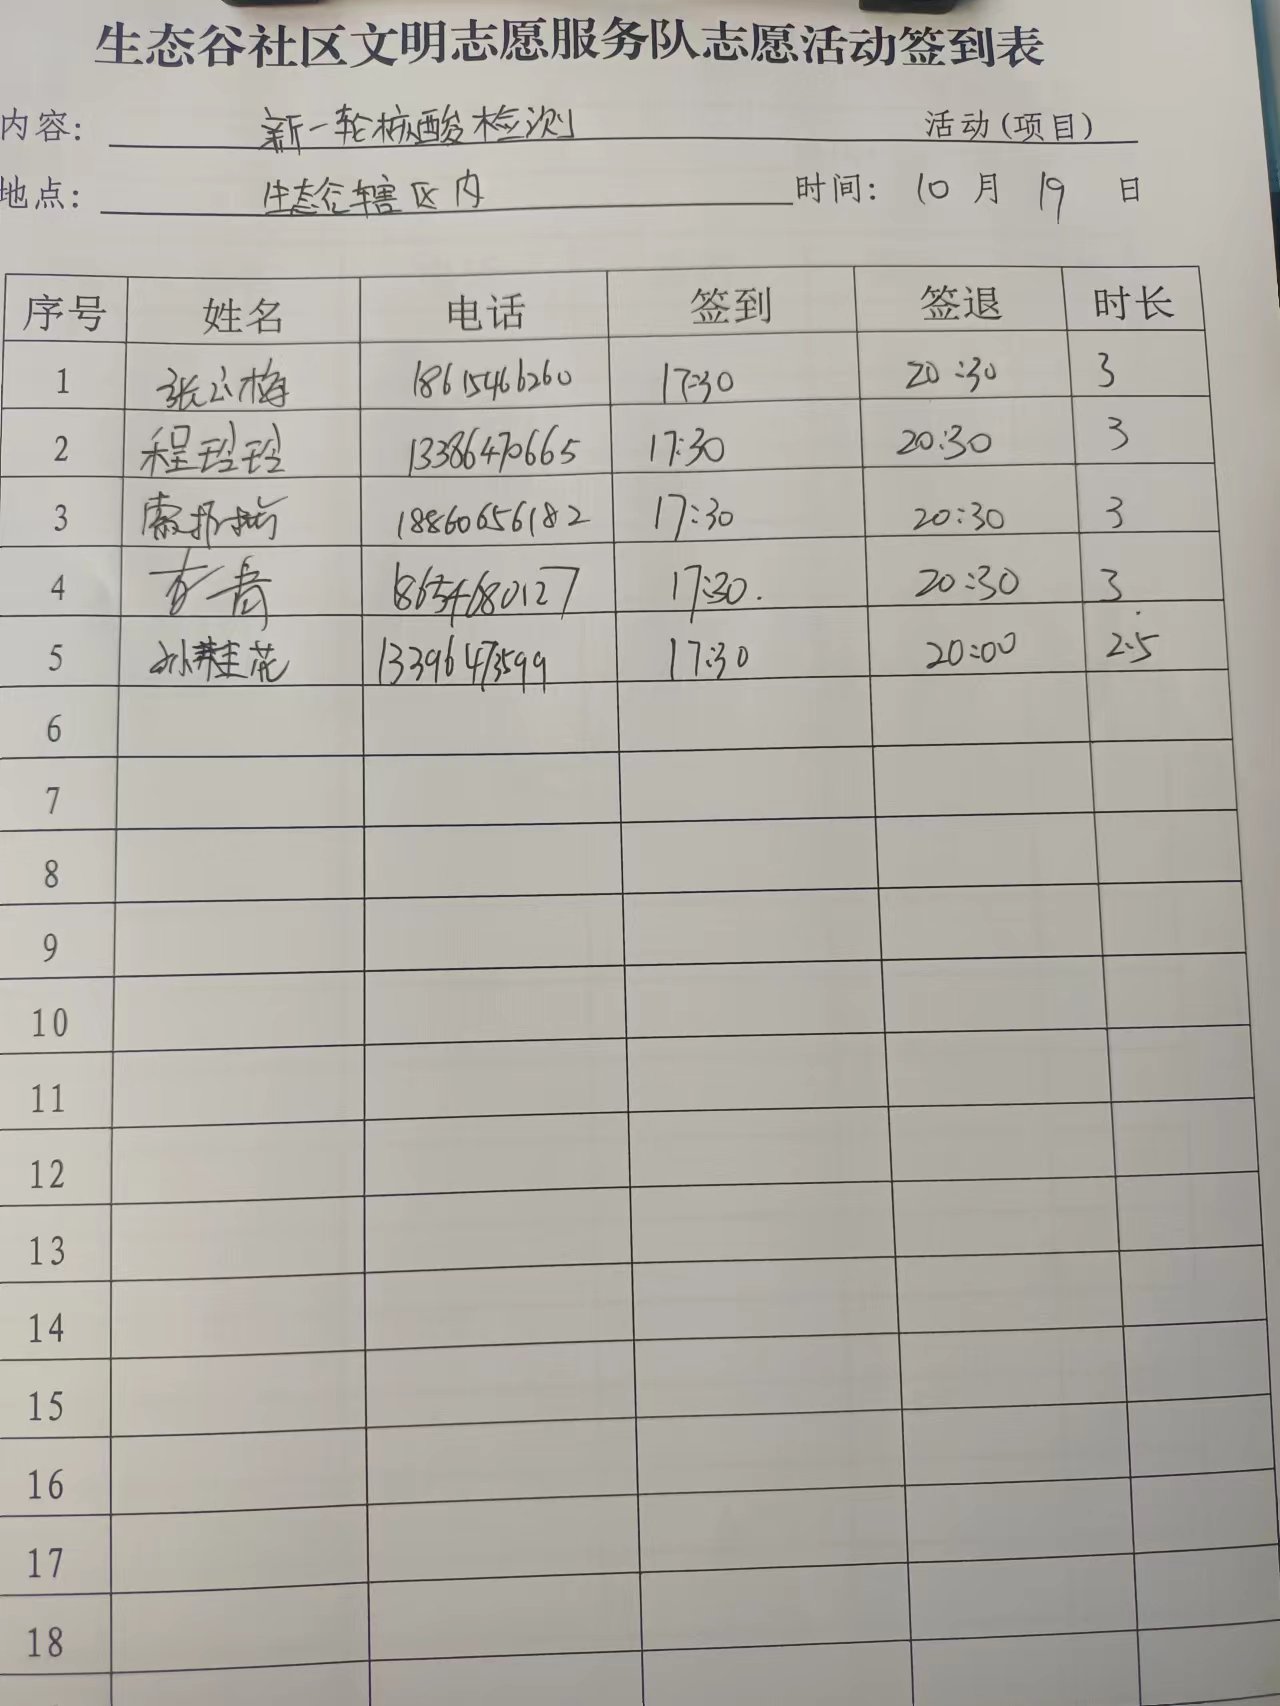 生态谷社区文明志愿服务队志愿活动签到表
内容: 新一轮核酸检测 活动(项目)
地点: 生态谷辖区内 时间: 10月19日
序号 姓名 电话 签到 签退 时长
1 18615466260 17:30 20:30 3
2 程玲玲 13386470665 17:30 20:30 3
3 18860656182 17:30 20:30 3
4 18654680127 17:30. 20:30 3
5 孙桂花 13396473599 17:30 20:00 2.5
6
7
8
9
10
11
12
13
14
15
16
17
18